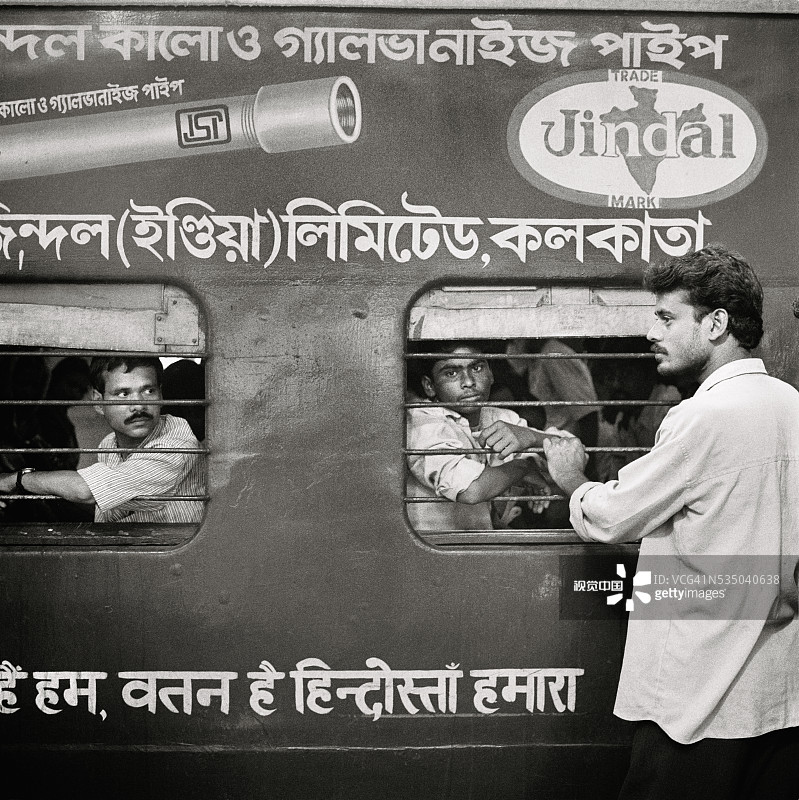 ন্দল কালো ও গ্যালভানাইজ পাইপ
কালো ও গ্যালভানাইজ পাইপ
TRADE
Jindal
MARK
ISI
জিন্দল (ইণ্ডিয়া) লিমিটেড, কলকাতা
हैं हम, वतन है हिन्दोस्ताँ हमारा
视觉中国
ID: VCG41N535040638
gettyimages